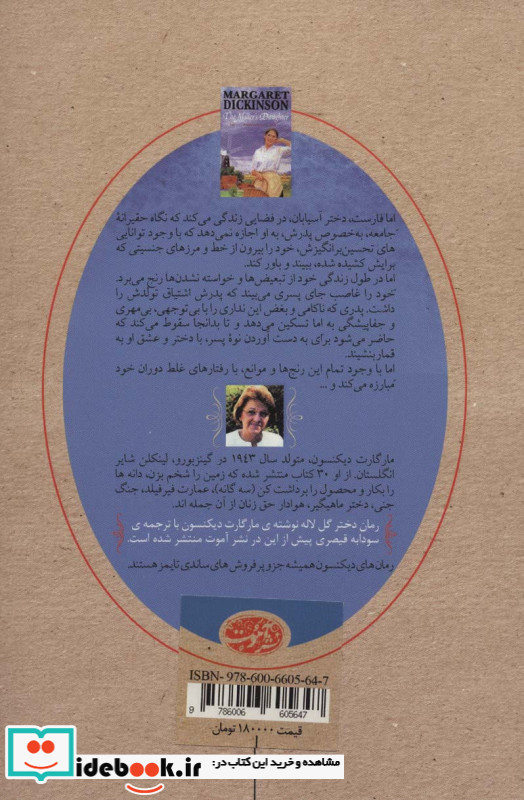 MARGARET
DICKINSON
The Miller's Daughter
اما فارست، دختر آسیابان، در فضایی زندگی می‌کند که نگاه حقیرانهٔ
جامعه، به‌خصوص پدرش، به او اجازه نمی‌دهد که با وجود توانایی
های تحسین‌برانگیزش، خود را بیرون از خط و مرزهای جنسیتی که
برایش کشیده شده، ببیند و باور کند.
اما در طول زندگی خود از تبعیض‌ها و خواسته نشدن‌ها رنج می‌برد.
خود را غاصب جای پسری می‌بیند که پدرش اشتیاق تولدش را
داشت. پدری که ناکامی و بغض این نداری را با بی‌توجهی، بی‌مهری
و جفاپیشگی به اما تسکین می‌دهد و تا بدانجا سقوط می‌کند که
حاضر می‌شود برای به دست آوردن نوهٔ پسر، با دختر و عشق او به
قمار بنشیند.
اما با وجود تمام این رنج‌ها و موانع، با رفتارهای غلط دوران خود
مبارزه می‌کند و ...
مارگارت دیکنسون، متولد سال ۱۹۴۳ در گینزبورو، لینکلن شایر
انگلستان. از او ۳۰ کتاب منتشر شده که زمین را شخم بزن، دانه ها
را بکار و محصول را برداشت کن (سه گانه)، عمارت فیرفیلد، جنگ
جنی، دختر ماهیگیر، هوادار حق زنان از آن جمله اند.
رمان دختر گل لاله نوشته ی مارگارت دیکنسون با ترجمه ی
سودابه قیصری پیش از این در نشر آموت منتشر شده است.
رمان های دیکنسون همیشه جزو پرفروش های ساندی تایمز هستند.
نشر آموت
ISBN- 978-600-6605-64-7
9 786006 605647
قیمت ۱۸۰۰۰۰ تومان
idebook.ir
مشاهده و خرید این کتاب در: